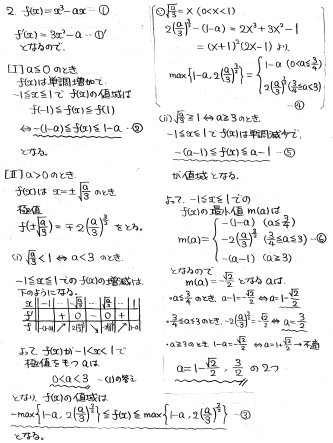 2. f(x)=x³-ax … ①
f'(x)=3x²-a … ①'
となるので、
[I] a≦0 のとき
f(x)は単調増加で、
-1≦x≦1 で f(x)の値域は
f(-1)≦f(x)≦f(1)
⇔ -(1-a)≦f(x)≦1-a … ②
となる。
[II] a>0 のとき
f(x)は x=±√(a/3) のとき
極値
f(±√(a/3)) = ∓2(a/3)^(3/2) をとる。
(i) √(a/3)<1 ⇔ a<3 のとき
-1≦x≦1 での f(x)の増減は
下のようになる。
x | -1 | … | -√(a/3) | … | √(a/3) | … | 1
f' | + | 0 | - | 0 | +
f | -(1-a) | ↗ | 2(a/3)^(3/2) | ↘ | ↗ | 1-a
よって f(x)が -1<x<1 で
極値をもつ a は
0<a<3 …(1)の答え
となり、f(x)の値域は
-max{1-a, 2(a/3)^(3/2)}≦f(x)≦max{1-a, 2(a/3)^(3/2)} … ③
となる。
√(a/3)=X (0<X<1)
2(a/3)^(3/2)-(1-a) = 2X³+3X²-1
= (X+1)²(2X-1) より
max{1-a, 2(a/3)^(3/2)} = { 1-a (0<a≦3/4)
2(a/3)^(3/2) (3/4≦a<3)
… ④
(ii) √(a/3)≧1 ⇔ a≧3 のとき
-1≦x≦1 で f(x)は単調減少で、
-(a-1)≦f(x)≦a-1 … ⑤
が値域となる。
よって、-1≦x≦1 での
f(x)の最小値 m(a)は
m(a)= { -(1-a) (a≦3/4)
-2(a/3)^(3/2) (3/4≦a≦3) … ⑥
-(a-1) (a≧3)
となるので
m(a)=-√2/2 となる a は、
・a≦3/4 のとき、a-1=-√2/2 ⇔ a=1-√2/2
・3/4≦a≦3 のとき、-2(a/3)^(3/2)=-√2/2 ⇔ a=3/2
・a≧3 のとき 1-a=-√2/2 ⇔ a=1+√2/2 → 不適
a=1-√2/2, 3/2 の2つ